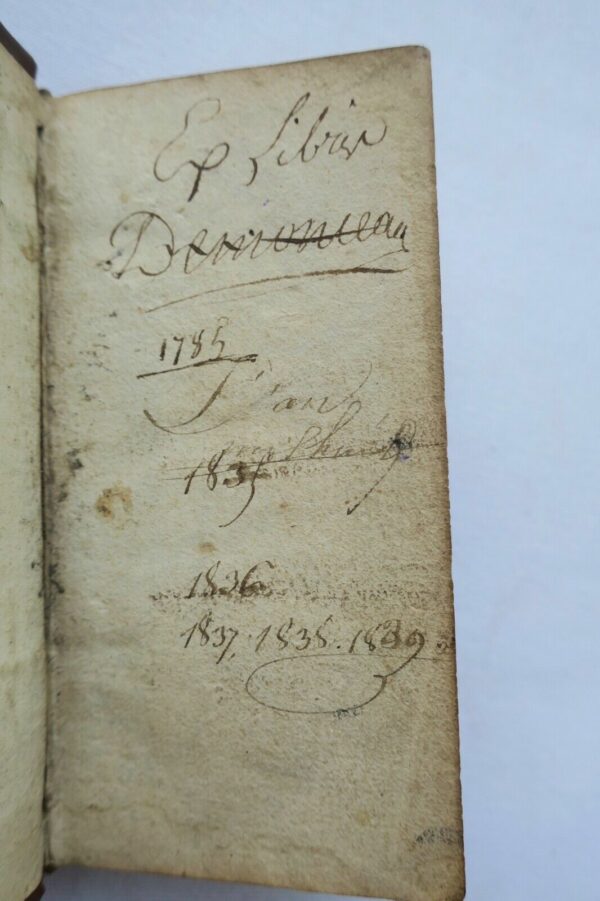 Ex Libris
Demonceau
1785
1835
1836
1837. 1838. 1839